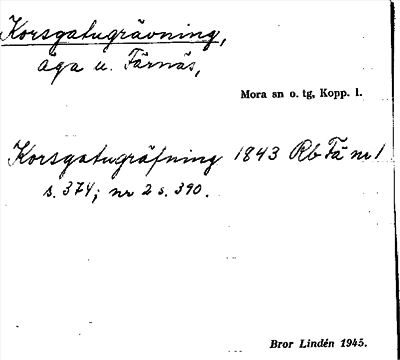 Korsgatugrävning,
äga u. Färnäs,
Mora sn o. tg, Kopp. l.
Korsgatugräfning 1843 Rb Fä nr 1
s. 374; nr 2 s. 390.
Bror Lindén 1945.